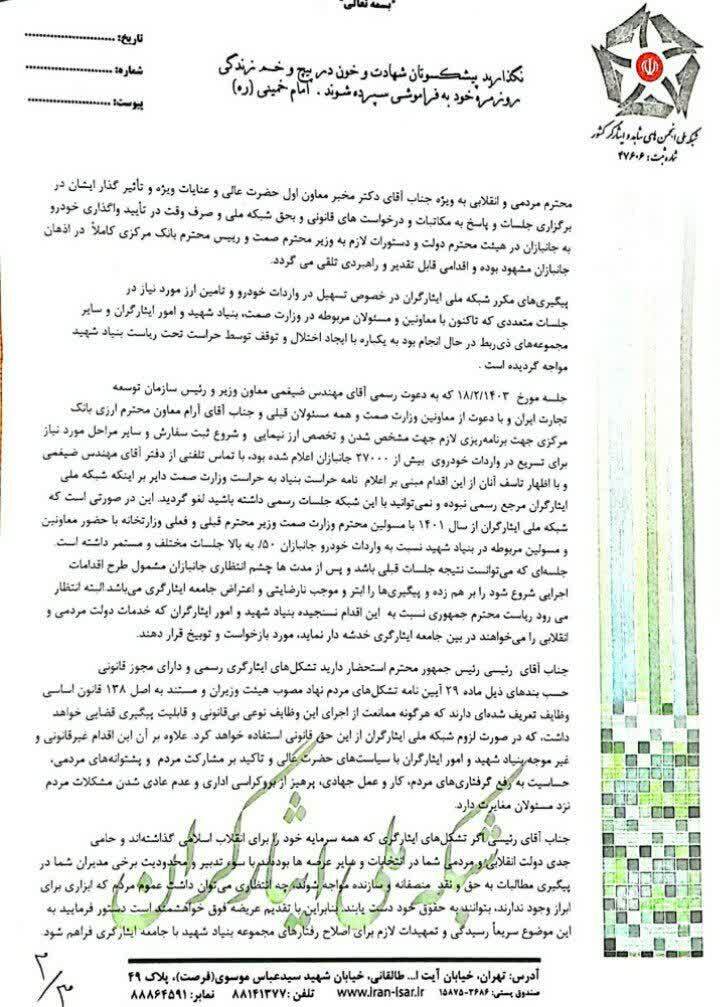 "بسمه تعالی"
تاریخ: ............................
شماره: ............................
پیوست: ............................
نگذارید پیشکسوتان شهادت و خون در پیچ و خم زندگی
روزمره خود به فراموشی سپرده شوند . امام خمینی (ره)
شبکه ملی انجمن های شاهد و ایثارگر کشور
شماره ثبت: ۴۷۶۰۶
محترم مردمی و انقلابی به ویژه جناب آقای دکتر مخبر معاون اول حضرت عالی و عنایات ویژه و تأثیر گذار ایشان در
برگزاری جلسات و پاسخ به مکاتبات و درخواست های قانونی و بحق شبکه ملی و صرف وقت در تأیید واگذاری خودرو
به جانبازان در هیئت محترم دولت و دستورات لازم به وزیر محترم صمت و رییس محترم بانک مرکزی کاملاً در اذهان
جانبازان مشهود بوده و اقدامی قابل تقدیر و راهبردی تلقی می گردد.
پیگیری‌های مکرر شبکه ملی ایثارگران در خصوص تسهیل در واردات خودرو و تامین ارز مورد نیاز در
جلسات متعددی که تاکنون با معاونین و مسئولان مربوطه در وزارت صمت، بنیاد شهید و امور ایثارگران و سایر
مجموعه‌های ذی‌ربط در حال انجام بود به یکباره با ایجاد اختلال و توقف توسط حراست تحت ریاست بنیاد شهید
مواجه گردیده است .
جلسه مورخ ۱۸/۲/۱۴۰۳ که به دعوت رسمی آقای مهندس ضیغمی معاون وزیر و رئیس سازمان توسعه
تجارت ایران و با دعوت از معاونین وزارت صمت و همه مسئولان قبلی و جناب آقای آرام معاون محترم ارزی بانک
مرکزی جهت برنامه‌ریزی لازم جهت مشخص شدن و تخصص ارز نیمایی و شروع ثبت سفارش و سایر مراحل مورد نیاز
برای تسریع در واردات خودروی بیش از ۲۷۰۰۰ جانبازان اعلام شده بود، با تماس تلفنی از دفتر آقای مهندس ضیغمی
و با اظهار تاسف آنان از این اقدام مبنی بر اعلام نامه حراست بنیاد به حراست وزارت صمت دایر بر اینکه شبکه ملی
ایثارگران مرجع رسمی نبوده و نمی‌توانید با این شبکه جلسات رسمی داشته باشید لغو گردید. این در صورتی است که
شبکه ملی ایثارگران از سال ۱۴۰۱ با مسولین محترم وزارت صمت وزیر محترم قبلی و فعلی وزارتخانه با حضور معاونین
و مسولین مربوطه در بنیاد شهید نسبت به واردات خودرو جانبازان ۵۰٪ به بالا جلسات مختلف و مستمر داشته است.
جلسه‌ای که می‌توانست نتیجه جلسات قبلی باشد و پس از مدت ها چشم انتظاری جانبازان مشمول طرح اقدامات
اجرایی شروع شود را بر هم زده و پیگیری‌ها را ابتر و موجب نارضایتی و اعتراض جامعه ایثارگری می‌باشد.البته انتظار
می رود ریاست محترم جمهوری نسبت به این اقدام نسنجیده بنیاد شهید و امور ایثارگران که خدمات دولت مردمی و
انقلابی را می‌خواهند در بین جامعه ایثارگری خدشه دار نماید، مورد بازخواست و توبیخ قرار دهند.
جناب آقای رئیسی رئیس جمهور محترم استحضار دارید تشکل‌های ایثارگری رسمی و دارای مجوز قانونی
حسب بندهای ذیل ماده ۲۹ آیین نامه تشکل‌های مردم نهاد مصوب هیئت وزیران و مستند به اصل ۱۳۸ قانون اساسی
وظایف تعریف شده‌ای دارند که هرگونه ممانعت از اجرای این وظایف نوعی بی‌قانونی و قابلیت پیگیری قضایی خواهد
داشت، که در صورت لزوم شبکه ملی ایثارگران از این حق قانونی استفاده خواهد کرد. علاوه بر آن این اقدام غیرقانونی و
غیر موجه بنیاد شهید و امور ایثارگران با سیاست‌های حضرت عالی و تاکید بر مشارکت مردم و پشتوانه‌های مردمی،
حساسیت به رفع گرفتاری‌های مردم، کار و عمل جهادی، پرهیز از بروکراسی اداری و عدم عادی شدن مشکلات مردم
نزد مسئولان مغایرت دارد.
جناب آقای رئیسی اگر تشکل‌های ایثارگری که همه سرمایه خود را برای انقلاب اسلامی گذاشته‌اند و حامی
جدی دولت انقلابی و مردمی شما در انتخابات و سایر عرصه ها بوده‌اند با سوء تدبیر و محدودیت برخی مدیران شما در
پیگیری مطالبات به حق و نقد منصفانه و سازنده مواجه شوند، چه انتظاری می‌توان داشت عموم مردم که ابزاری برای
ابراز وجود ندارند، بتوانند به حقوق خود دست یابند. بنابراین با تقدیم عریضه فوق خواهشمند است دستور فرمایید به
این موضوع سریعاً رسیدگی و تمهیدات لازم برای اصلاح رفتارهای مجموعه بنیاد شهید با جامعه ایثارگری فراهم شود.
شبکه ملی ایثارگران
۲/۳
آدرس: تهران، خیابان آیت ا... طالقانی، خیابان شهید سیدعباس موسوی(فرصت)، پلاک ۴۹
صندوق پستی: ۳۶۸۶-۱۵۸۷۵ www.iran-isar.ir تلفن: ۸۸۱۴۱۳۷۷ نمابر: ۸۸۸۶۴۵۹۱